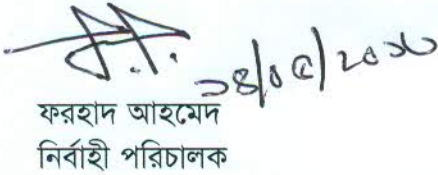 ১৪/০৫/২০২০
ফরহাদ আহমেদ
নির্বাহী পরিচালক